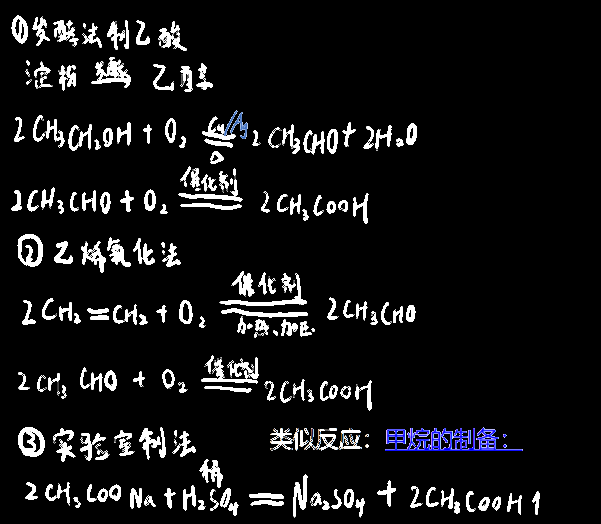 ①发酵法制乙酸
淀粉 发酵→ 乙醇
2CH₃CH₂OH + O₂ =Cu/Ag △= 2CH₃CHO + 2H₂O
2CH₃CHO + O₂ =催化剂= 2CH₃COOH
② 乙烯氧化法
2CH₂=CH₂ + O₂ =催化剂 加热、加压= 2CH₃CHO
2CH₃CHO + O₂ =催化剂= 2CH₃COOH
③ 实验室制法 类似反应：甲烷的制备：
2CH₃COONa + 稀H₂SO₄ = Na₂SO₄ + 2CH₃COOH↑